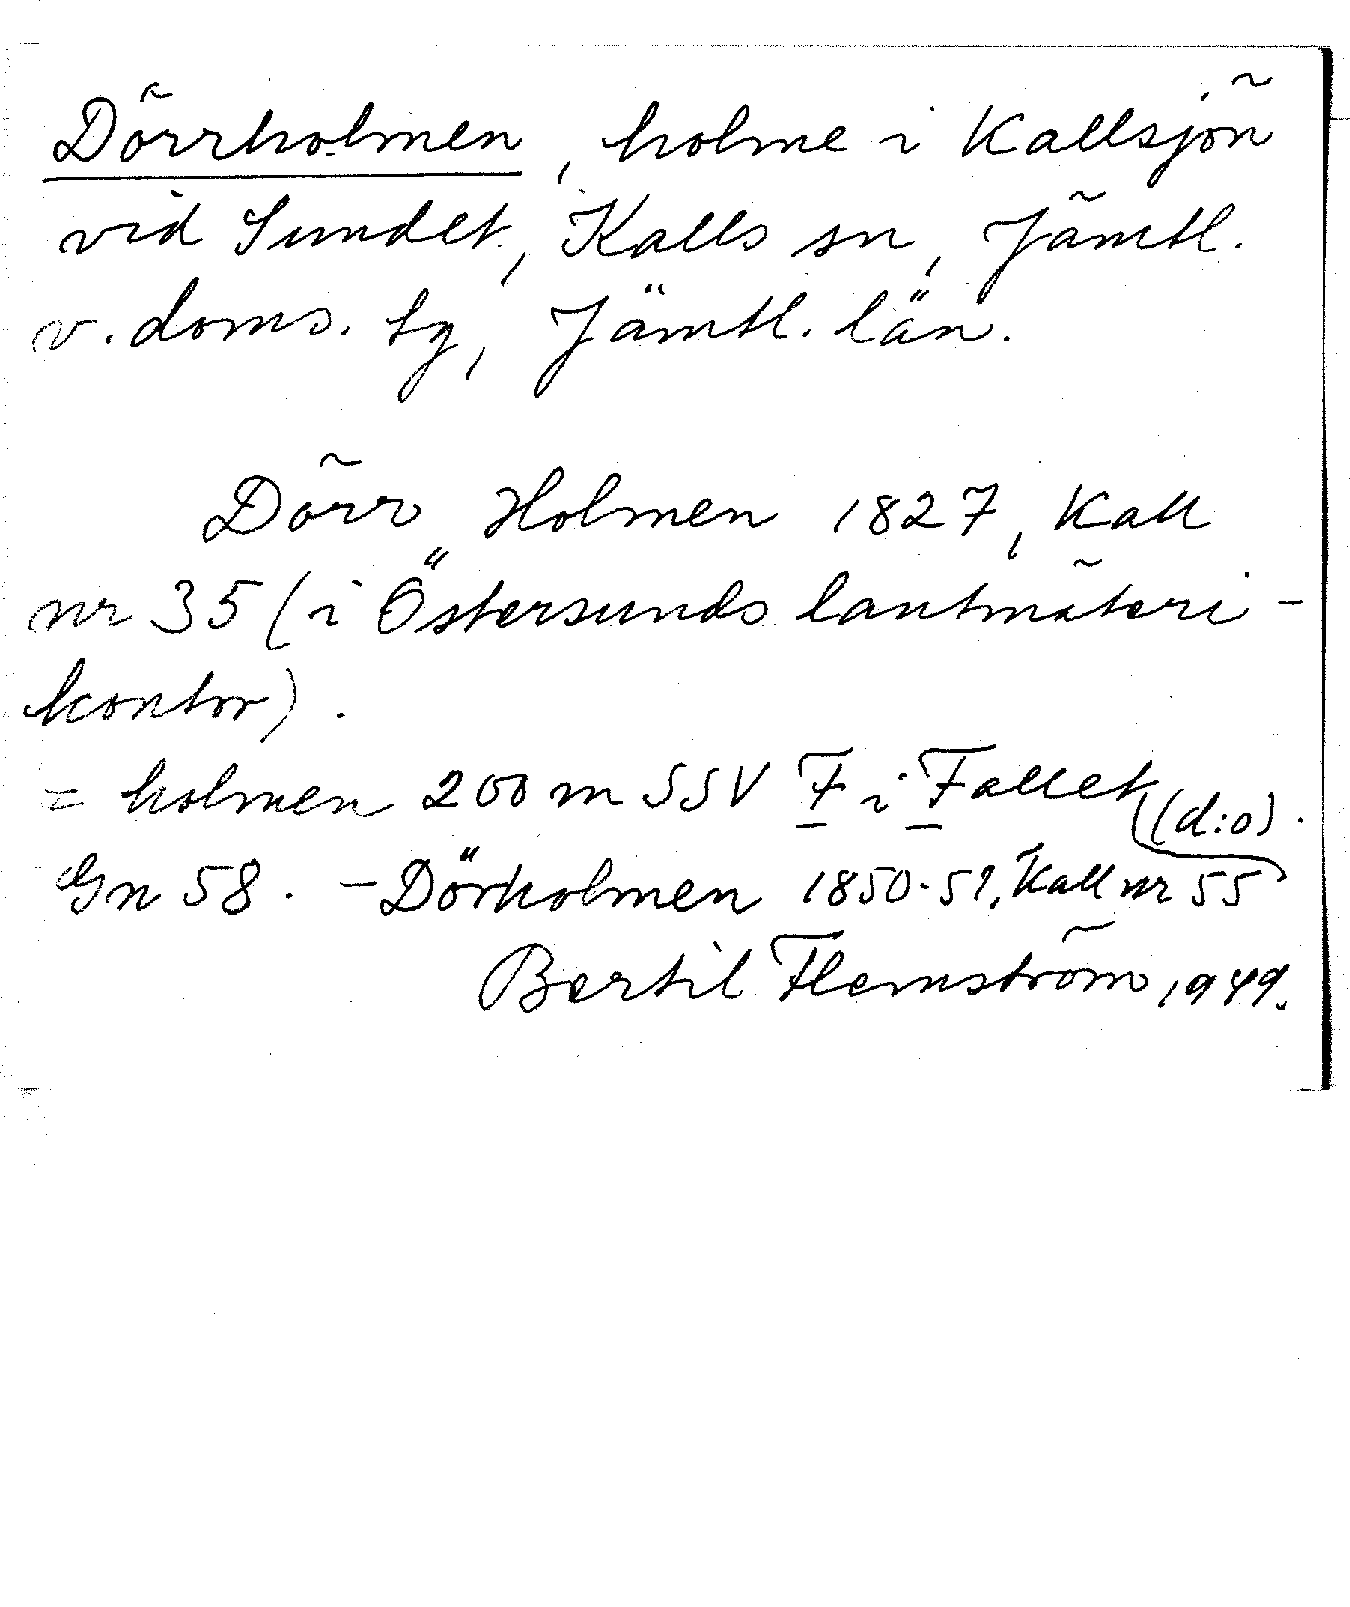 Dörrholmen, holme i Kallsjön
vid Sundet, Kalls sn, Jämtl.
v. doms. tg, Jämtl. län.
Dörr Holmen 1827, Kall
nr 35 (i Östersunds lantmäteri-
kontor).
= holmen 200 m SSV F i Fallet
Gn 58. - Dörholmen 1850-51, Kall nr 55 (d:o).
Bertil Flemström, 1949.